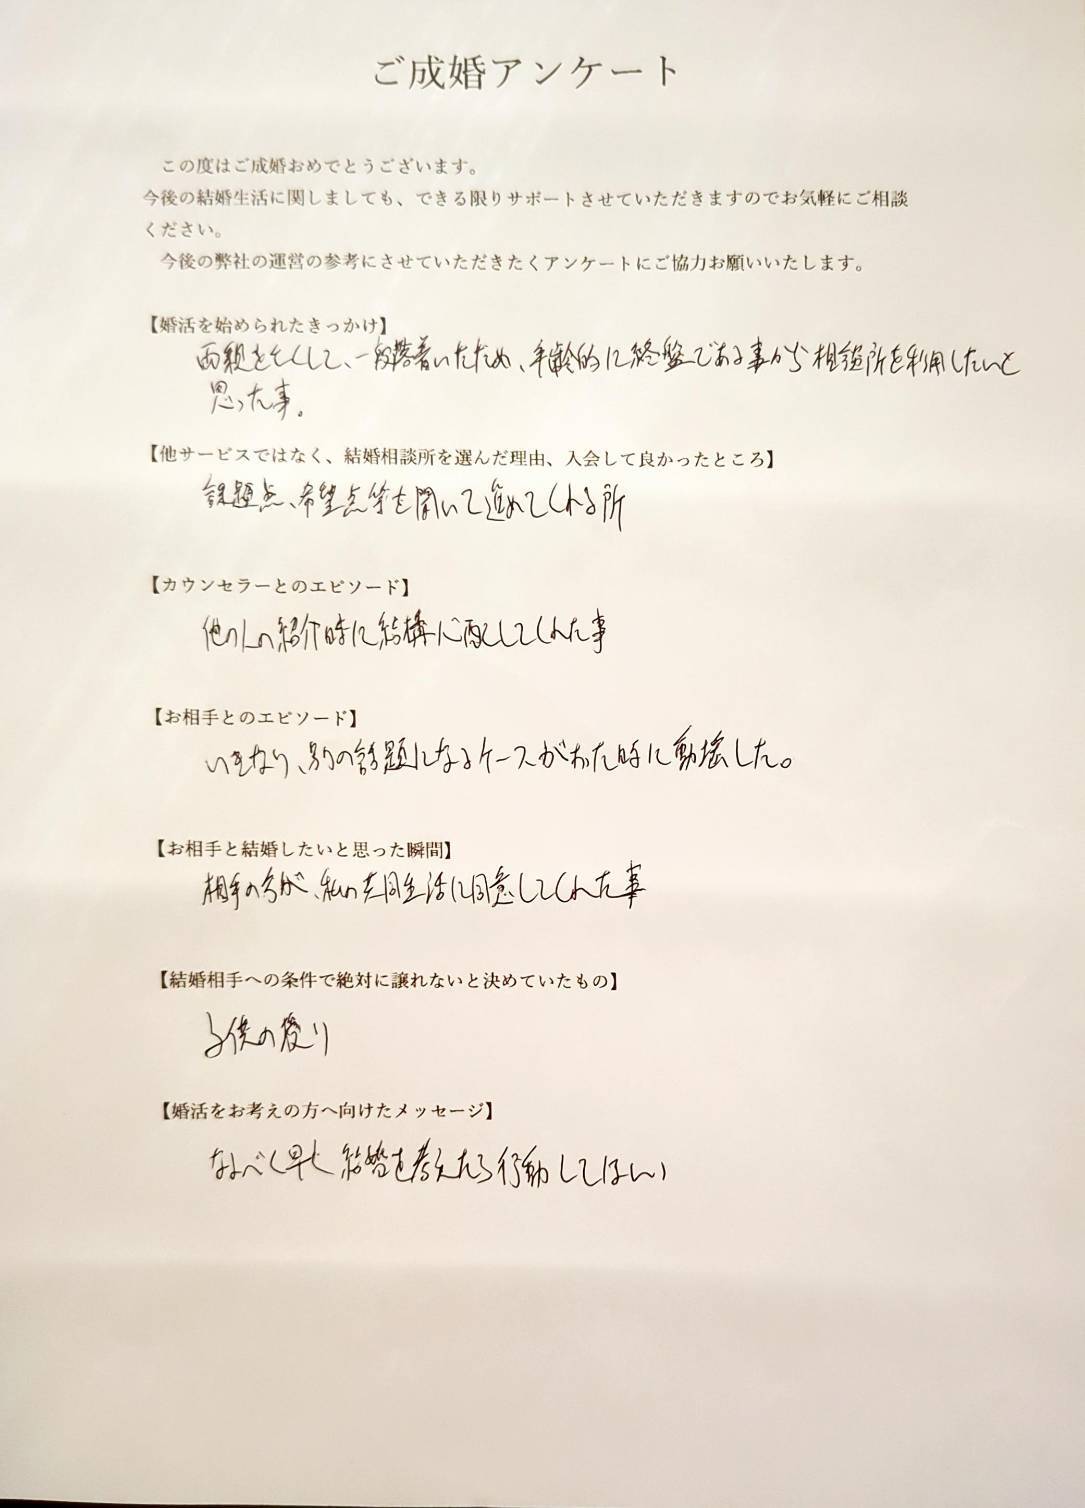 ご成婚アンケート
この度はご成婚おめでとうございます。
今後の結婚生活に関しましても、できる限りサポートさせていただきますのでお気軽にご相談
ください。
今後の弊社の運営の参考にさせていただきたくアンケートにご協力お願いいたします。
【婚活を始められたきっかけ】
両親を亡くして、一段落着いたため、年齢的に終盤である事から相談所を利用したいと
思った事。
【他サービスではなく、結婚相談所を選んだ理由、入会して良かったところ】
課題点、希望点等を聞いて進めてくれる所
【カウンセラーとのエピソード】
他の人の紹介時に結構心配してくれた事
【お相手とのエピソード】
いきなり、別の話題になるケースがあった時に動揺した。
【お相手と結婚したいと思った瞬間】
相手の方が、私の共同生活に同意してくれた事
【結婚相手への条件で絶対に譲れないと決めていたもの】
子供の
【婚活をお考えの方へ向けたメッセージ】
なるべく早く結婚を考えたら行動してほしい